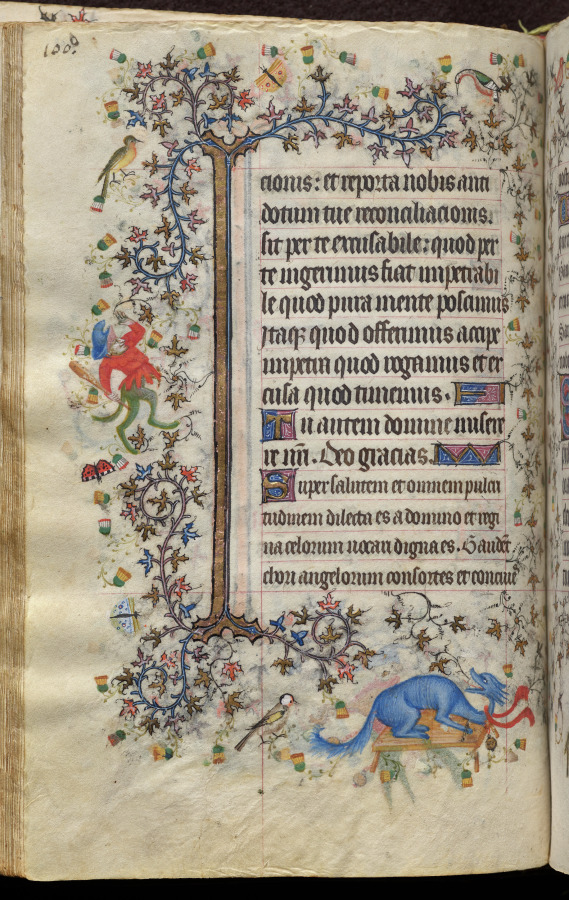 100.
cionis: et reporta nobis anti
dotum tue reconciliacionis.
sit per te excusabile: quod per
te ingerimus fiat impetrabi
le quod pura mente poscimus
Itaq; quod offerimus accipe
impetra quod rogamus et ex
cusa quod timemus.
Tu autem domine miserere
re nri. Deo gracias.
Super salutem et omnem pulcri
tudinem dilecta es a domino et regi
na celorum vocari digna es. Gaudet
chori angelorum consortes et conciues